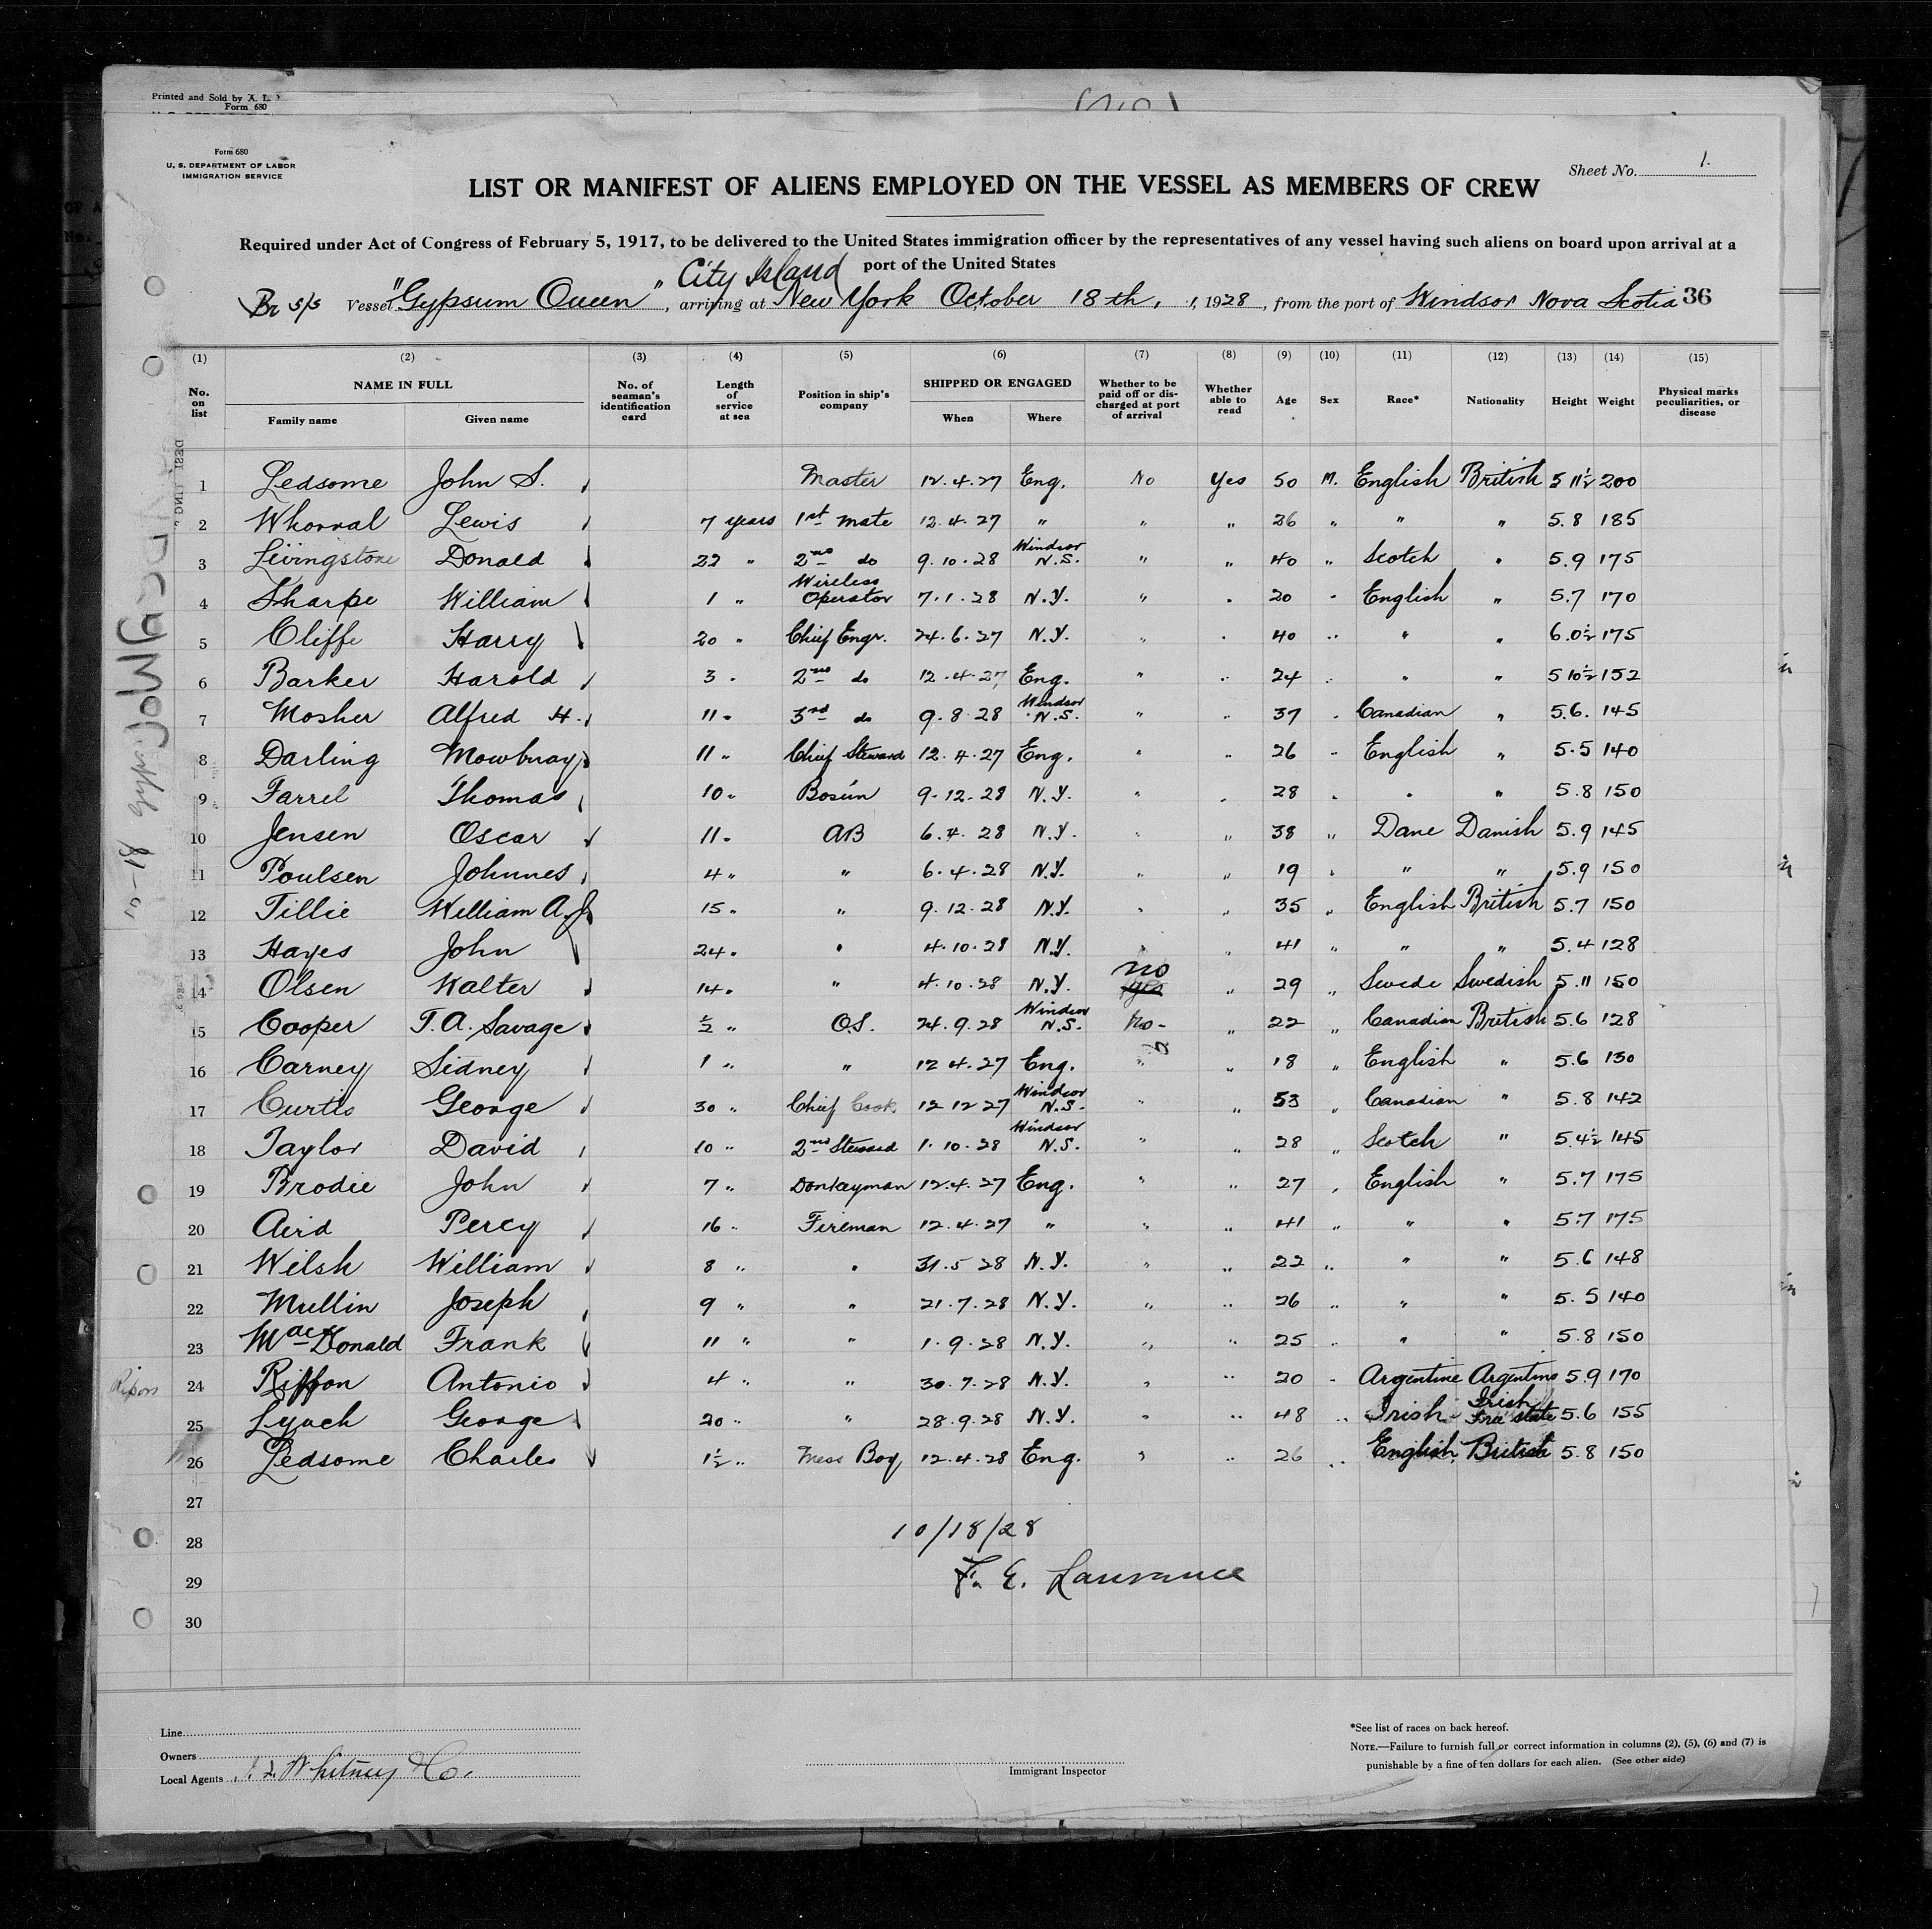 Printed and Sold by A. L.
Form 680
Form 680
U. S. DEPARTMENT OF LABOR
IMMIGRATION SERVICE
Sheet No. 1.
LIST OR MANIFEST OF ALIENS EMPLOYED ON THE VESSEL AS MEMBERS OF CREW
Required under Act of Congress of February 5, 1917, to be delivered to the United States immigration officer by the representatives of any vessel having such aliens on board upon arrival at a
port of the United States
City Island
Br S/S Vessel "Gypsum Queen", arriving at New York October 18th, 1928, from the port of Windsor Nova Scotia 36
(1) (2) (3) (4) (5) (6) (7) (8) (9) (10) (11) (12) (13) (14) (15)
No. on list NAME IN FULL Family name Given name No. of seaman's identification card Length of service at sea Position in ship's company SHIPPED OR ENGAGED When Where Whether to be paid off or discharged at port of arrival Whether able to read Age Sex Race* Nationality Height Weight Physical marks peculiarities, or disease
1 Ledsome John S. Master 12.4.27 Eng. No Yes 50 M. English British 5 11½ 200
2 Whorral Lewis 7 years 1st mate 12.4.27 " " " 26 " " " 5.8 185
3 Livingstone Donald 22 " 2nd do 9.10.28 Windsor N.S. " " 40 " Scotch " 5.9 175
4 Sharpe William 1 " Wireless Operator 7.1.28 N.Y. " " 20 " English " 5.7 170
5 Cliffe Harry 20 " Chief Engr. 24.6.27 N.Y. " " 40 " " " 6.0½ 175
6 Barker Harold 3 " 2nd do 12.4.27 Eng. " " 24 " " " 5 10½ 152
7 Mosher Alfred H. 11 " 3rd do 9.8.28 Windsor N.S. " " 37 " Canadian " 5.6. 145
8 Darling Mowbray 11 " Chief Steward 12.4.27 Eng. " " 26 " English " 5.5 140
9 Farrel Thomas 10 " Bosun 9.12.28 N.Y. " " 28 " " " 5.8 150
10 Jensen Oscar 11 " AB 6.4.28 N.Y. " " 38 " Dane Danish 5.9 145
11 Poulsen Johnnes 4 " " 6.4.28 N.Y. " " 19 " " " 5.9 150
12 Tillie William A.J. 15 " " 9.12.28 N.Y. " " 35 " English British 5.7 150
13 Hayes John 24 " " 4.10.28 N.Y. " " 41 " " " 5.4 128
14 Olsen Walter 14 " " 4.10.28 N.Y. no yes " 29 " Swede Swedish 5.11 150
15 Cooper T.A. Savage ½ " O.S. 24.9.28 Windsor N.S. No - " 22 " Canadian British 5.6 128
16 Carney Sidney 1 " " 12 4.27 Eng. " " 18 " English " 5.6 130
17 Curtis George 30 " Chief Cook 12 12 27 Windsor N.S. " " 53 " Canadian " 5.8 142
18 Taylor David 10 " 2nd Steward 1.10.28 Windsor N.S. " " 28 " Scotch " 5.4½ 145
19 Brodie John 7 " Donkeyman 12.4.27 Eng. " " 27 " English " 5.7 175
20 Aird Percy 16 " Fireman 12.4.27 " " " 41 " " " 5.7 175
21 Welsh William 8 " " 31.5 28 N.Y. " " 22 " " " 5.6 148
22 Mullin Joseph 9 " " 21.7.28 N.Y. " " 26 " " " 5.5 140
23 MacDonald Frank 11 " " 1.9.28 N.Y. " " 25 " " " 5.8 150
Ripon 24 Riffon Antonio 4 " " 30.7.28 N.Y. " " 20 " Argentine Argentino 5.9 170
25 Lynch George 20 " " 28.9.28 N.Y. " " 48 " Irish Irish Free state 5.6 155
26 Ledsome Charles 1½ " Mess Boy 12.4.28 Eng. " " 26 " English British 5.8 150
27
28 10/18/28
29 F. E. Lawrance
30
Line
Owners
Local Agents Whitney & Co.
Immigrant Inspector
*See list of races on back hereof.
NOTE.—Failure to furnish full or correct information in columns (2), (5), (6) and (7) is
punishable by a fine of ten dollars for each alien. (See other side)